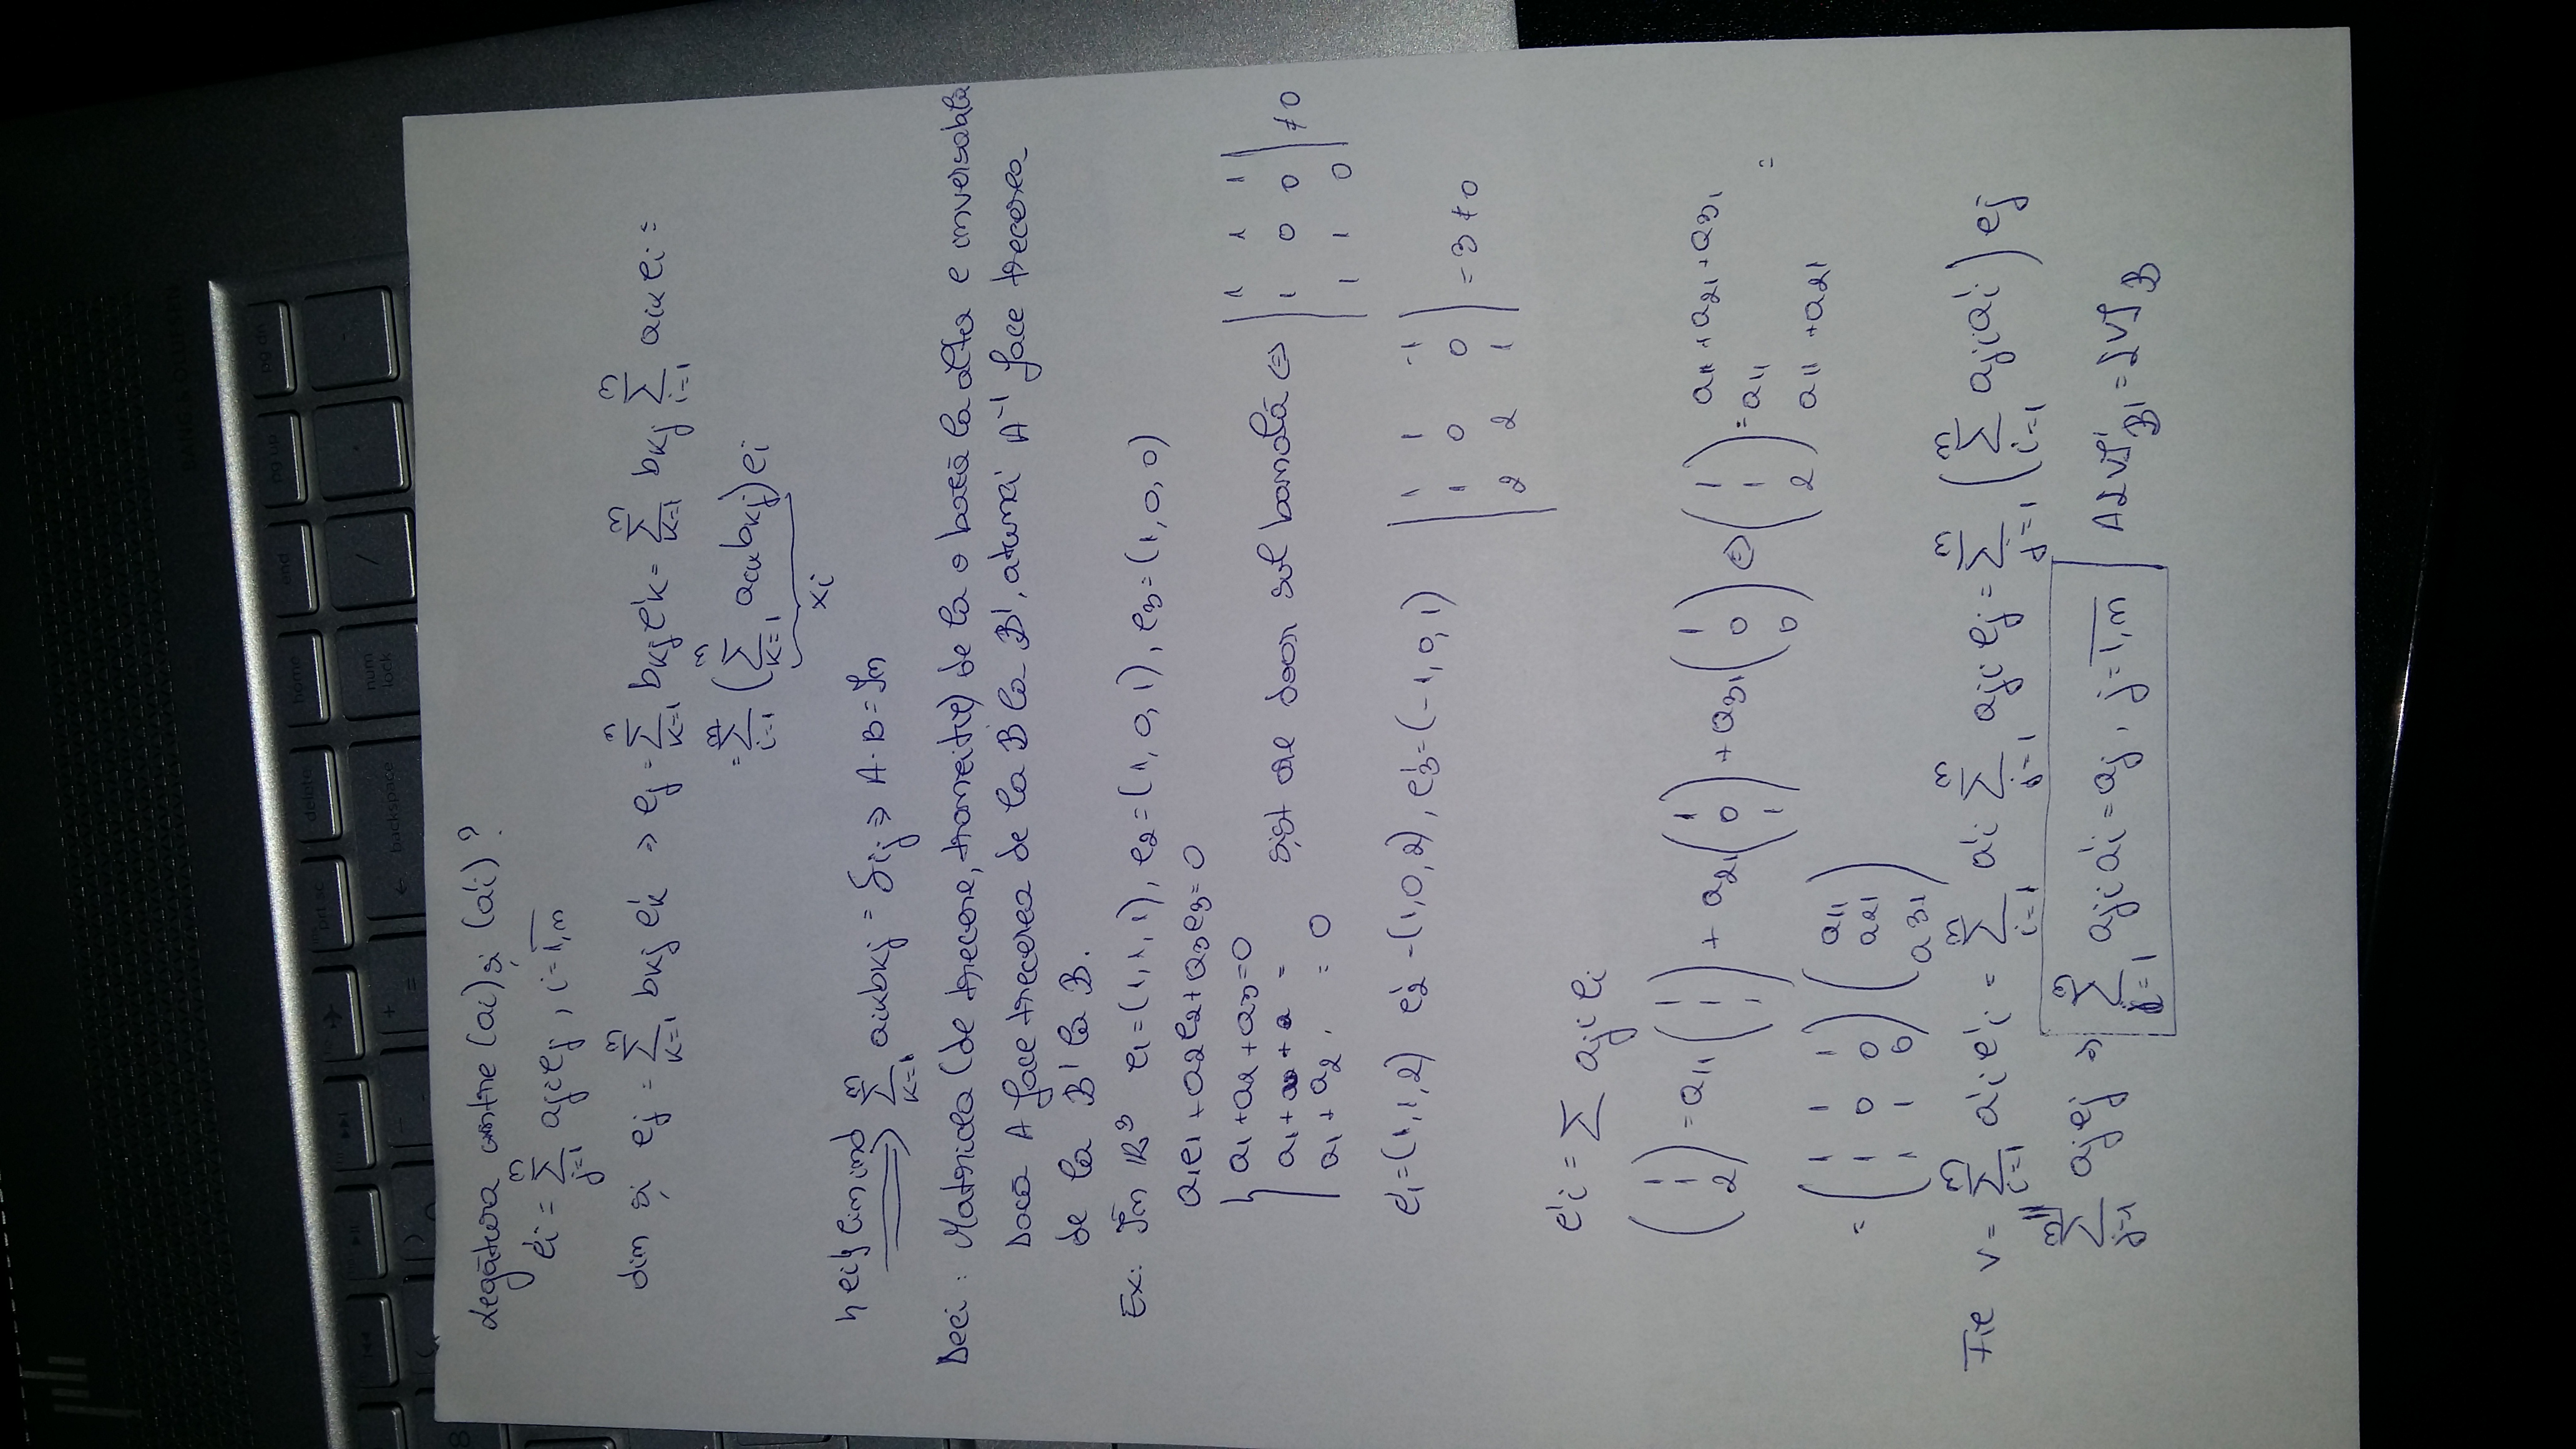 Legătura între (ai) și (a'i)?
e'i = Σ_{j=1}^{n} aji ej, i = 1,n
din și ej = Σ_{k=1}^{n} bkj e'k ⇒ ej = Σ_{k=1}^{n} bkj e'k = Σ_{k=1}^{n} bkj Σ_{i=1}^{n} aik ei =
= Σ_{i=1}^{n} (Σ_{k=1}^{n} aik bkj) ei
xi
{ei} lin ind ⇒ Σ_{k=1}^{n} aik bkj = δij ⇒ A·B = In
Deci: Matricea (de trecere, tranziție) de la o bază la alta e inversabilă
Dacă A face trecerea de la B la B', atunci A⁻¹ face trecerea
de la B' la B.
Ex: În R³ e1 = (1,1,1), e2 = (1,0,1), e3 = (1,0,0)
a1e1 + a2e2 + a3e3 = 0
{ a1 + a2 + a3 = 0
a1 + a =
a1 + a2 = 0 sist are doar sol banală ⇔ | 1 1 1 |
| 1 0 0 | ≠ 0
| 1 1 0 |
e'1 = (1,1,2) e'2 = (1,0,2), e'3 = (-1,0,1) | 1 1 -1 |
| 1 0 0 |
| 2 2 1 | = -3 ≠ 0
e'i = Σ aji ei
(1 1 2) = a11 (1 1 1) + a21 (1 0 1) + a31 (1 0 0) ⇔ (1 1 2) = a11 + a21 + a31
a11 =
a11 + a21
= (1 1 1
1 0 0
1 1 0) (a11
a21
a31)
Fie v = Σ_{i=1}^{n} a'i e'i = Σ_{i=1}^{n} a'i Σ_{j=1}^{n} aji ej = Σ_{j=1}^{n} (Σ_{i=1}^{n} aji a'i) ej
Σ_{j=1}^{n} aj ej ⇒ Σ_{i=1}^{n} aji a'i = aj, j = 1,n A[v]B' = [v]B